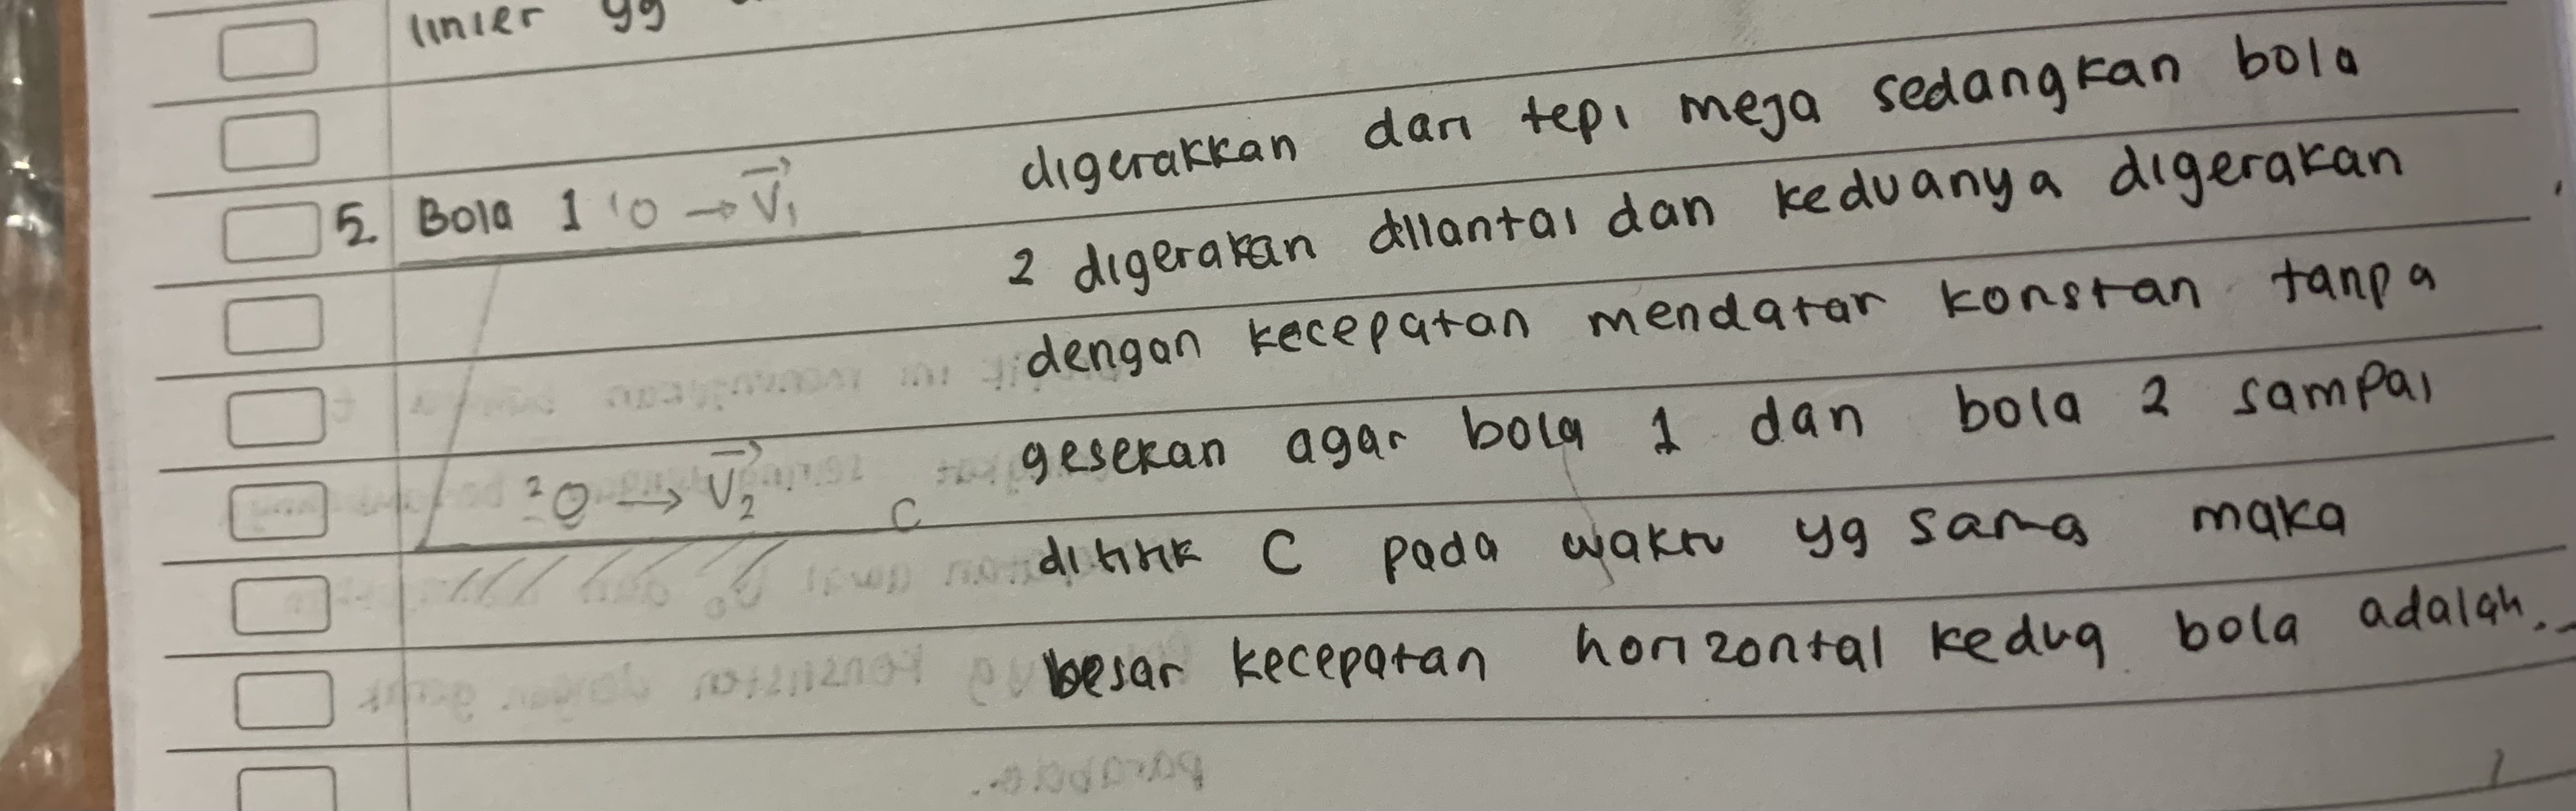 linier yg
5. Bola 1 'o → V₁ digerakkan dari tepi meja sedangkan bola
2 digerakan dilantai dan keduanya digerakan
dengan kecepatan mendatar konstan tanpa
2 o → V₂ C gesekan agar bola 1 dan bola 2 sampai
dititik C pada waktu yg sama maka
besar kecepatan horizontal kedua bola adalah..